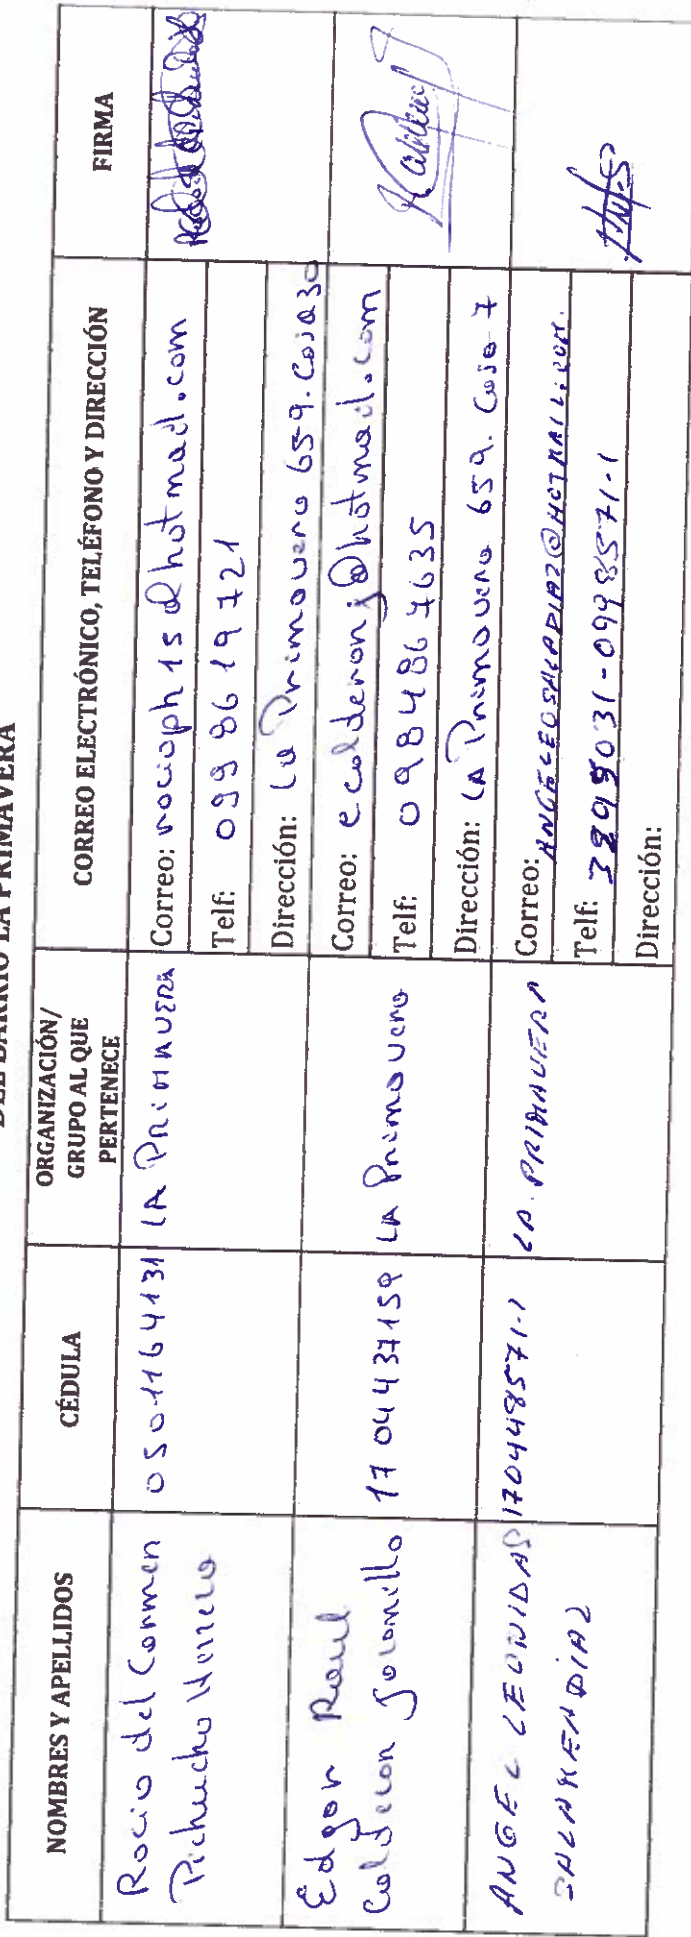 DEL BARRIO LA PRIMAVERA
NOMBRES Y APELLIDOS
CÉDULA
ORGANIZACIÓN/
GRUPO AL QUE
PERTENECE
CORREO ELECTRÓNICO, TELÉFONO Y DIRECCIÓN
FIRMA
Rocio del Carmen
Pichucho Herrera
0501164131
LA PRIMAVERA
Correo: rocioph15@hotmail.com
Telf: 099 8619721
Dirección: La Primavera 659. Casa 30
Edgar Raul
Calderon Jaramillo
1704437159
LA Primavera
Correo: ecalderonj@hotmail.com
Telf: 0984867635
Dirección: LA Primavera 659. Casa 7
ANGEL LEONIDAS
SALAMEA DIAZ
170448571-1
LA PRIMAVERA
Correo: ANGELEOSALADIAZ@HOTMAIL.COM.
Telf:
Dirección: